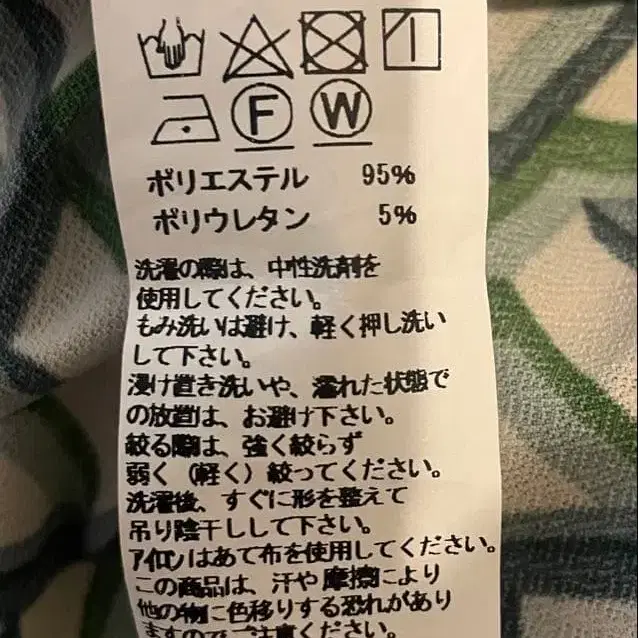 F W
ポリエステル 95%
ポリウレタン 5%
洗濯の際は、中性洗剤を
使用してください。
もみ洗いは避け、軽く押し洗い
して下さい。
浸け置き洗いや、濡れた状態で
の放置は、お避け下さい。
絞る際は、強く絞らず
弱く（軽く）絞ってください。
洗濯後、すぐに形を整えて
吊り陰干しして下さい。
アイロンはあて布を使用してください。
この商品は、汗や摩擦により
他の物に色移りする恐れがあり
ますのでご注意ください。